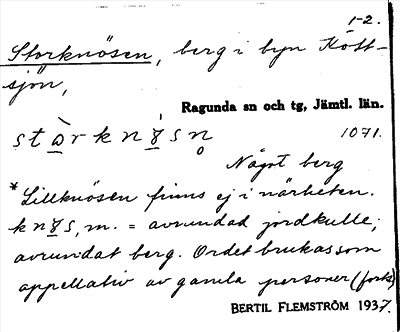 1-2.
Storknösen, berg i byn Kött-
sjön,
Ragunda sn och tg, Jämtl. län.
1071.
Någøt berg
*Lillknösen finns ej i närheten.
m. = avrundad jordkulle,
avrundat berg. Ordet brukas som
appellativ av gamla personer (forts)
BERTIL FLEMSTRÖM 1937.